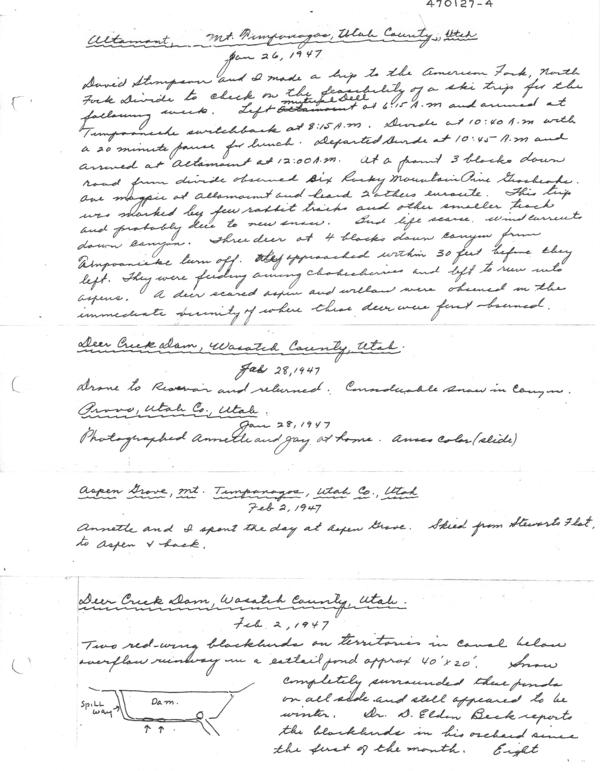 470127-4
Altamont, Mt. Timpanogas, Utah County, Utah
Jan 26, 1947
David Stimpson and I made a trip to the American Fork, North
Fork Divide to check on the feasibility of a ski trip for the
following week. Left Mutual Dell at 6:15 A.M and arrived at
Timpooneeke switchback at 8:15 A.M. Divide at 10:40 A.M with
a 20 minute pause for lunch. Departed Divide at 10:45 A.M and
arrived at Altamount at 12:00 A.M. At a point 3 blocks down
road from divide observed six Rocky Mountain Pine Grosbeaks.
One magpie at Altamount and heard 2 others enroute. This trip
was marked by few rabbit tracks and other smaller track
and probably due to new snow. Bird life scarce. Wind currents
down canyon. Three deer at 4 blocks down canyon from
turn off. They approached within 30 feet before they
left. They were feeding among chokecherries and left to run into
aspens. A deer scared aspen and willow were observed in the
immediate vicinity of where these deer were first observed.
Deer Creek Dam, Wasatch County, Utah.
Jan 28, 1947
Drove to Reservoir and returned. Considerable snow in Canyon.
Provo, Utah Co., Utah.
Jan 28, 1947
Photographed Annette and Jay at home. Ansco Color (slide)
Aspen Grove, Mt. Timpanogas, Utah Co., Utah
Feb 2, 1947
Annette and I spent the day at Aspen Grove. Skied from Stewarts Flat,
to Aspen & back.
Deer Creek Dam, Wasatch County, Utah.
Feb. 2, 1947
Two red-wing blackbirds on territories in canal below
overflow runway in a cattail pond approx 40'x20'. Snow
completely surrounded these ponds
on all side and still appeared to be
winter. Dr. D. Elden Beck reports
the blackbirds in his orchard since
the first of the month. Eight
Spill
way
Dam.